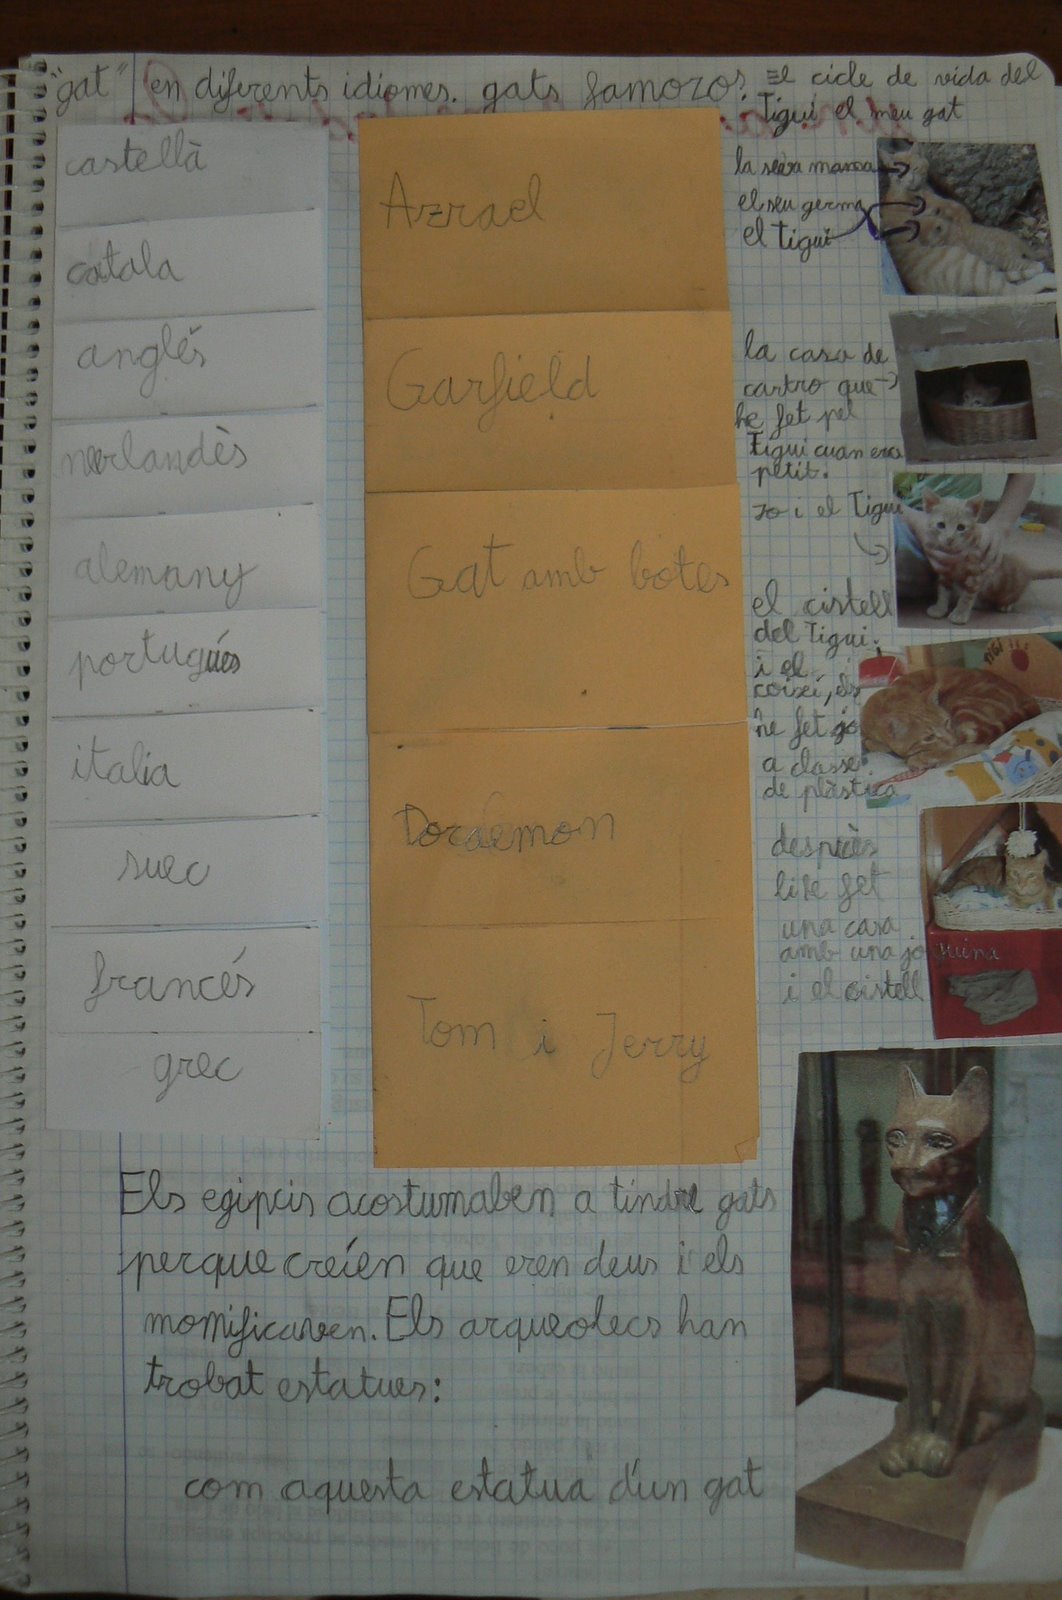 "gat" en diferents idiomes.
castellà
catala
anglés
nerlandès
alemany
portugués
italia
suec
francés
grec
gats famozos.
Azrael
Garfield
Gat amb botes
Doraemon
Tom i Jerry
El cicle de vida del
Tigui el meu gat
la seva mama
el seu germa
el Tigui
la casa de
cartro que
he fet pel
Tigui cuan era
petit.
Jo i el Tigui
el cistell
del Tigui.
i el
coixí, els
he fet jo
a classe
de plàstica
TIGI
després
li he fet
una casa
amb una joguina
i el cistell
Els egipcis acostumaben a tindre gats
perque creíen que eren deus i els
momificaven. Els arqueolecs han
trobat estatues:
com aquesta estatua d'un gat